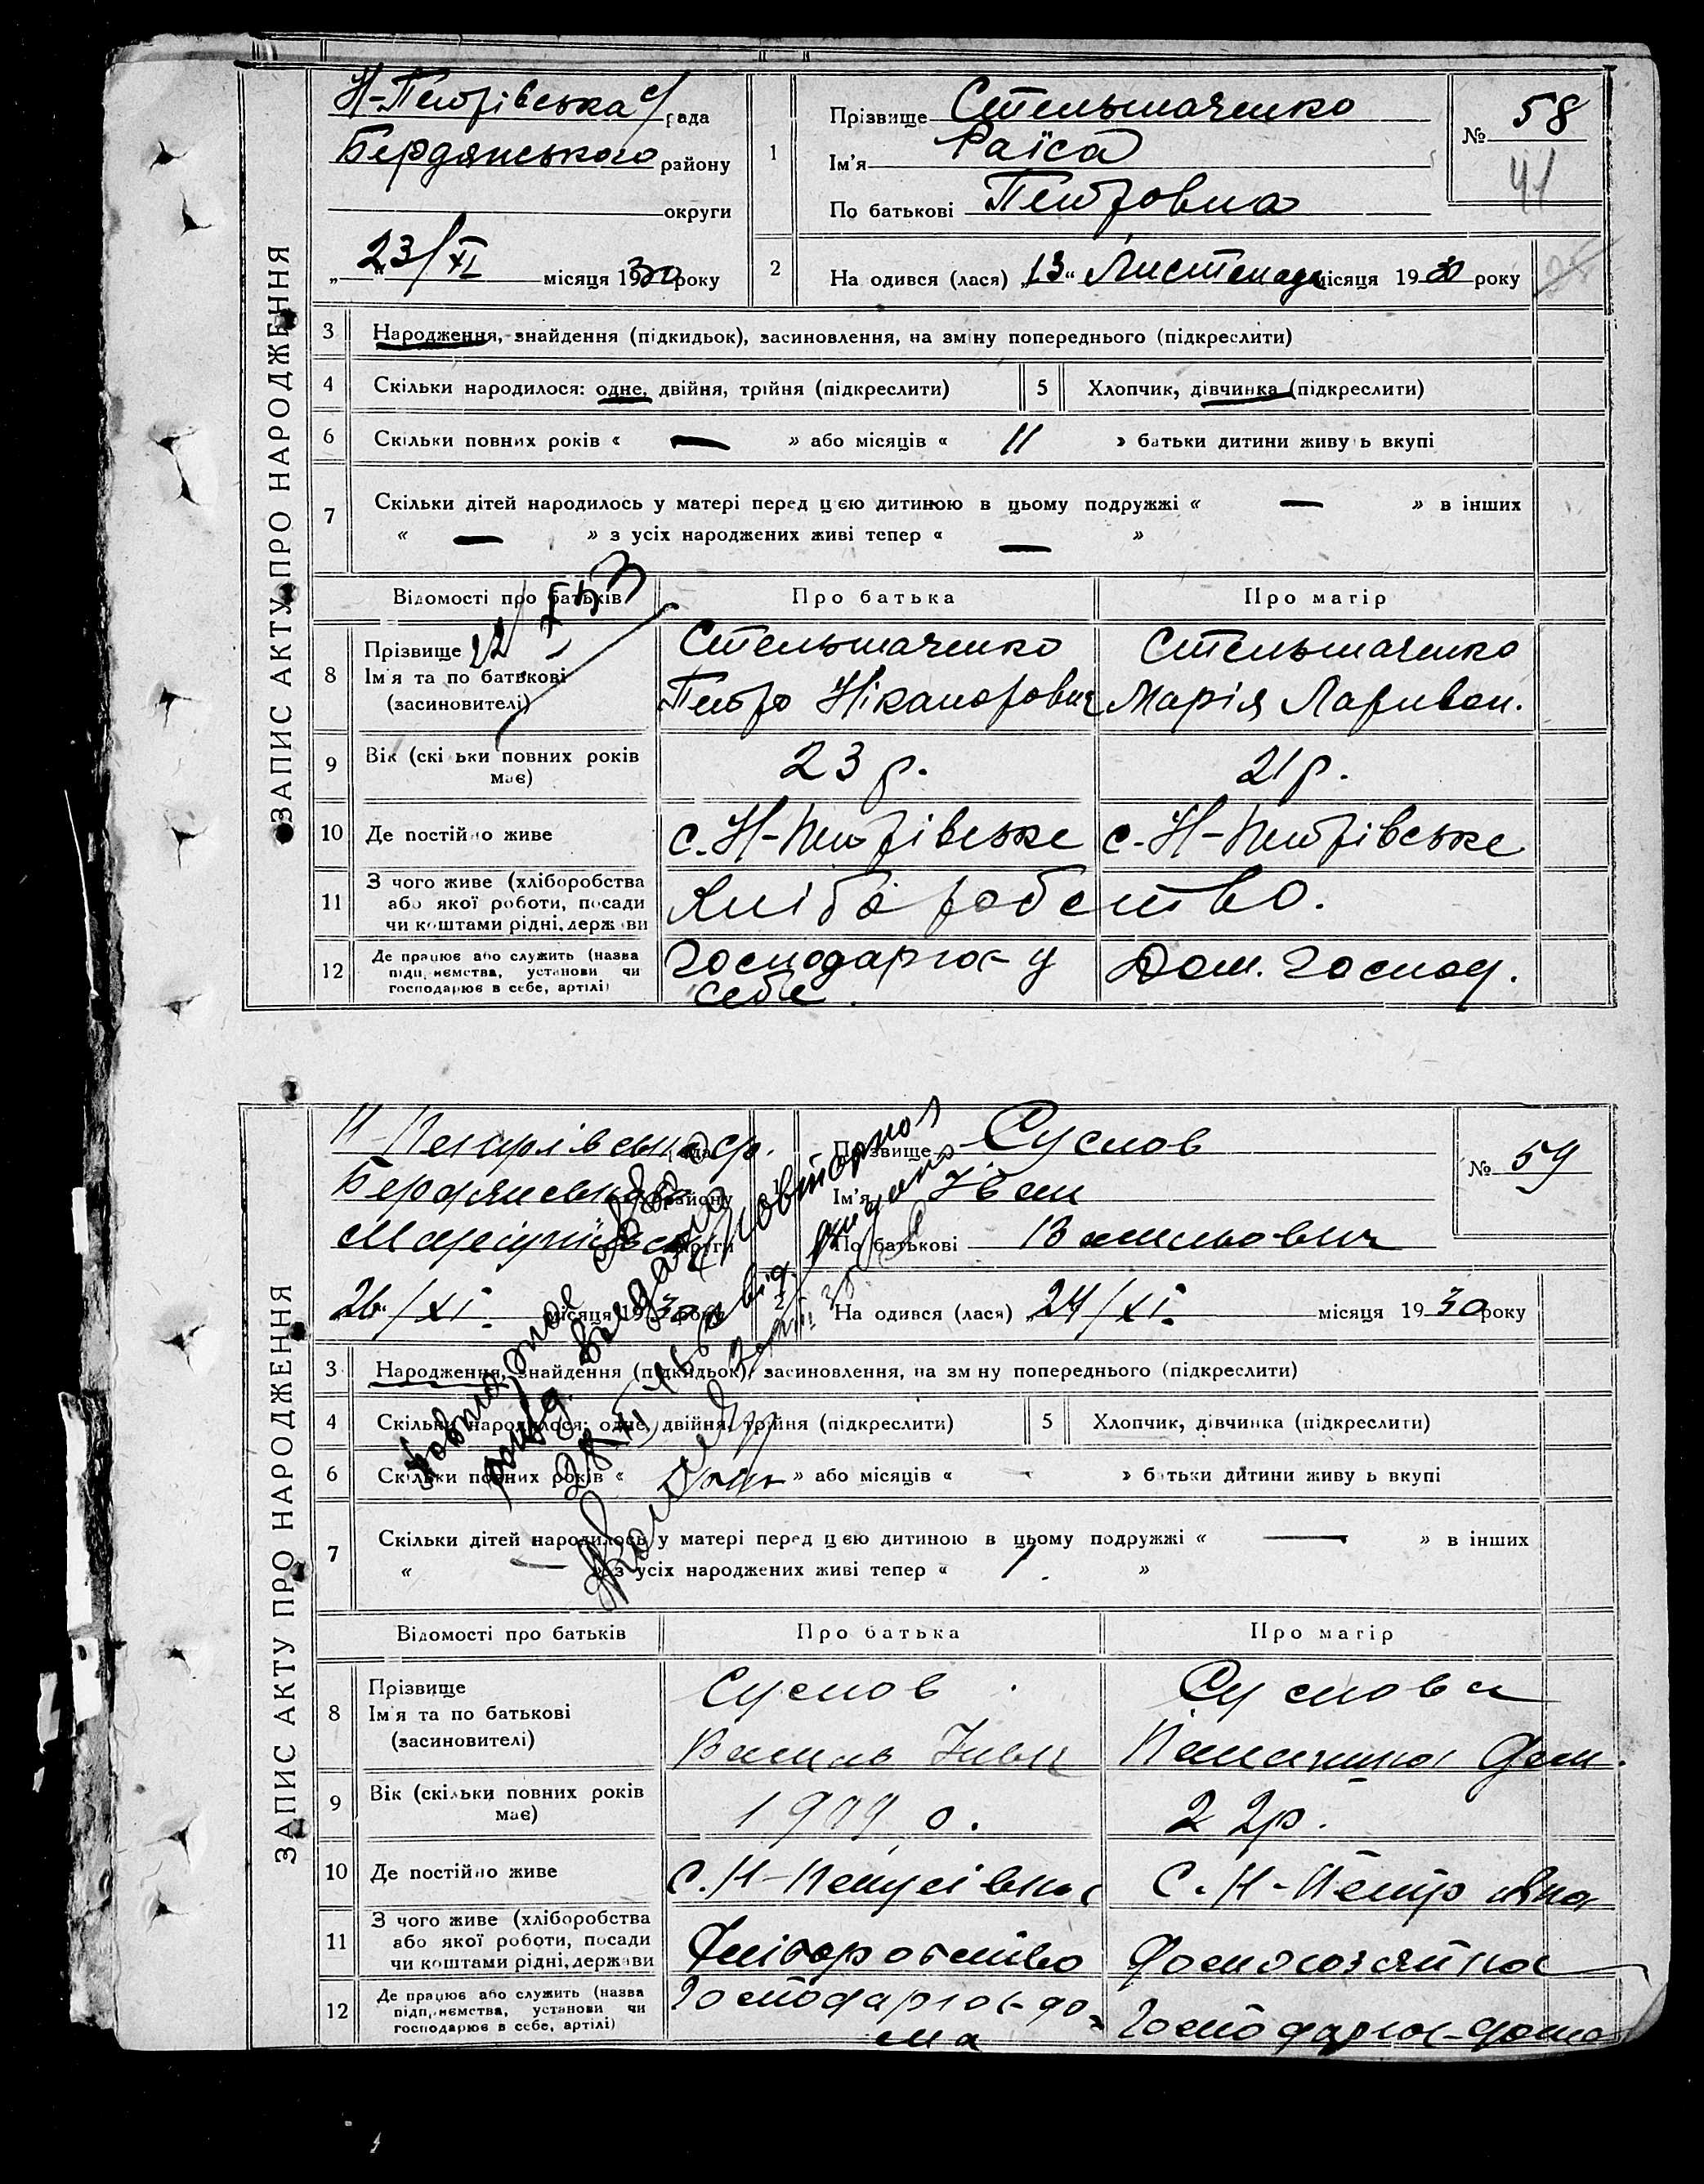 ЗАПИС АКТУ ПРО НАРОДЖЕННЯ
Н-Петрівська с/рада
Бердянського району
округи
„23/XI місяця 1930 року
1
Прізвище Стельмаченко
Ім'я Раїса
По батькові Петровна
№ 58
41
2
На одився (лася) „13“ Листопада місяця 1930 року
3 Народження, знайдення (підкидьок), засиновлення, на зміну попереднього (підкреслити)
4 Скільки народилося: одне, двійня, трійня (підкреслити) 5 Хлопчик, дівчинка (підкреслити)
6 Скільки повних років « — » або місяців « 11 » батьки дитини живу ь вкупі
7 Скільки дітей народилось у матері перед цією дитиною в цьому подружжі « — » в інших
« — » з усіх народжених живі тепер « — »
Відомості про батьків Про батька Про матір
8 Прізвище Стельмаченко Стельмаченко
Ім'я та по батькові Петро Ніканорович Марія Ларивон.
(засновителі)
9 Вік (скі ьки повних років має) 23 р. 21 р.
10 Де постійно живе с. Н-Петрівське с. Н-Петрівське
11 З чого живе (хліборобства
або якої роботи, посади
чи коштами рідні, держави
Хліборобство.
12 Де працює або служить (назва
підприємства, установи чи
господарює в себе, артілі)
Господарює у себе. Дом. господ.
ЗАПИС АКТУ ПРО НАРОДЖЕННЯ
Н-Петрівська ср. рада
Бердянський району
Маріупільської округи
„26/XI. місяця 1930 року
Прізвище Суслов
Ім'я Іван
По батькові Васильович
№ 59
2
На одився (лася) „24/XI. місяця 1930 року
3 Народження, знайдення (підкидьок), засиновлення, на зм ну попереднього (підкреслити)
4 Скільки народилося: одне, двійня, трійня (підкреслити) 5 Хлопчик, дівчинка (підкреслити)
6 Скільки повних років « » або місяців « - » батьки дитини живу ь вкупі
7 Скільки дітей народилось у матері перед цією дитиною в цьому подружжі « — » в інших
« — » з усіх народжених живі тепер « »
Відомості про батьків Про батька Про матір
8 Прізвище Суслов Суслова
Ім'я та по батькові Василь Іван
(засновителі)
9 Вік (скільки повних років має) 22р.
10 Де постійно живе с. Н-Петрівка с. Н-Петрівка
11 З чого живе (хліборобства
або якої роботи, посади
чи коштами рідні, держави
Хліборобство Домохозяйка
12 Де працює або служить (назва
підприємства, установи чи
господарює в себе, артілі)
Господарює дома Господарює дома